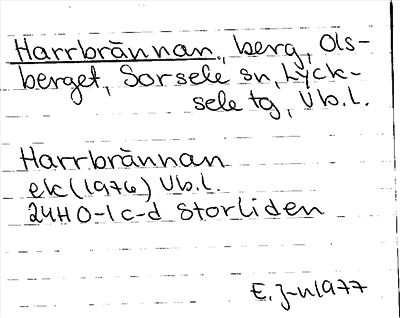 Harrbrännan, berg, Ols-
berget, Sorsele sn, Lyck-
sele tg, Vb.l.
Harrbrännan
ek (1976) Vb.l.
24H 0-1 c-d Storliden
E. J-n 1977